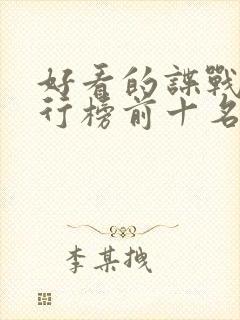 好看的諜戰
行榜前十名
李某拽